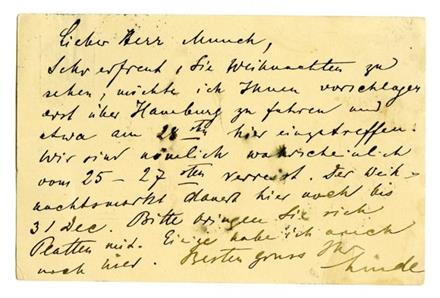 Lieber Herr Munch,
Sehr erfreut, Sie Weihnachten zu
sehen, möchte ich Ihnen vorschlagen
erst über Hamburg zu fahren und
etwa am 28 sten hier eingetroffen.
Wir sind nämlich wahrscheinlich
vom 25 – 27 sten verreist. Der Weih-
nachtsmarkt dauert hier noch bis
31 Dec. Bitte bringen Sie sich
Platten mit. Einige habe ich auch
noch hier. Besten Gruss Ihr
Linde